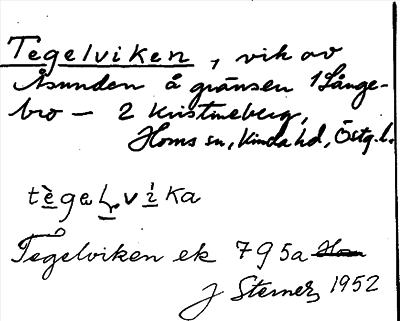 Tegelviken, vik av
Åsunden å gränsen 1 Långe-
bro — 2 Kristineberg,
Horns sn, Kinda hd, Östg.l.
tègeḷvìka
Tegelviken ek 795a
J Sterner 1952